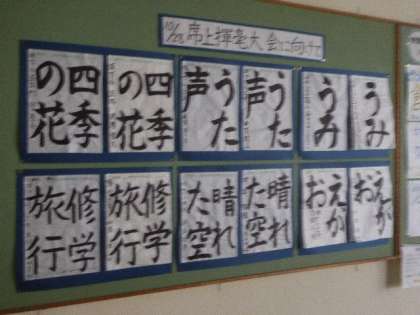 10/28 席上揮毫大会に向けて
四季
の花
四季
の花
うた
声
うた
声
うみ
うみ
修学
旅行
修学
旅行
晴れ
た空
晴れ
た空
えが
お
えが
お